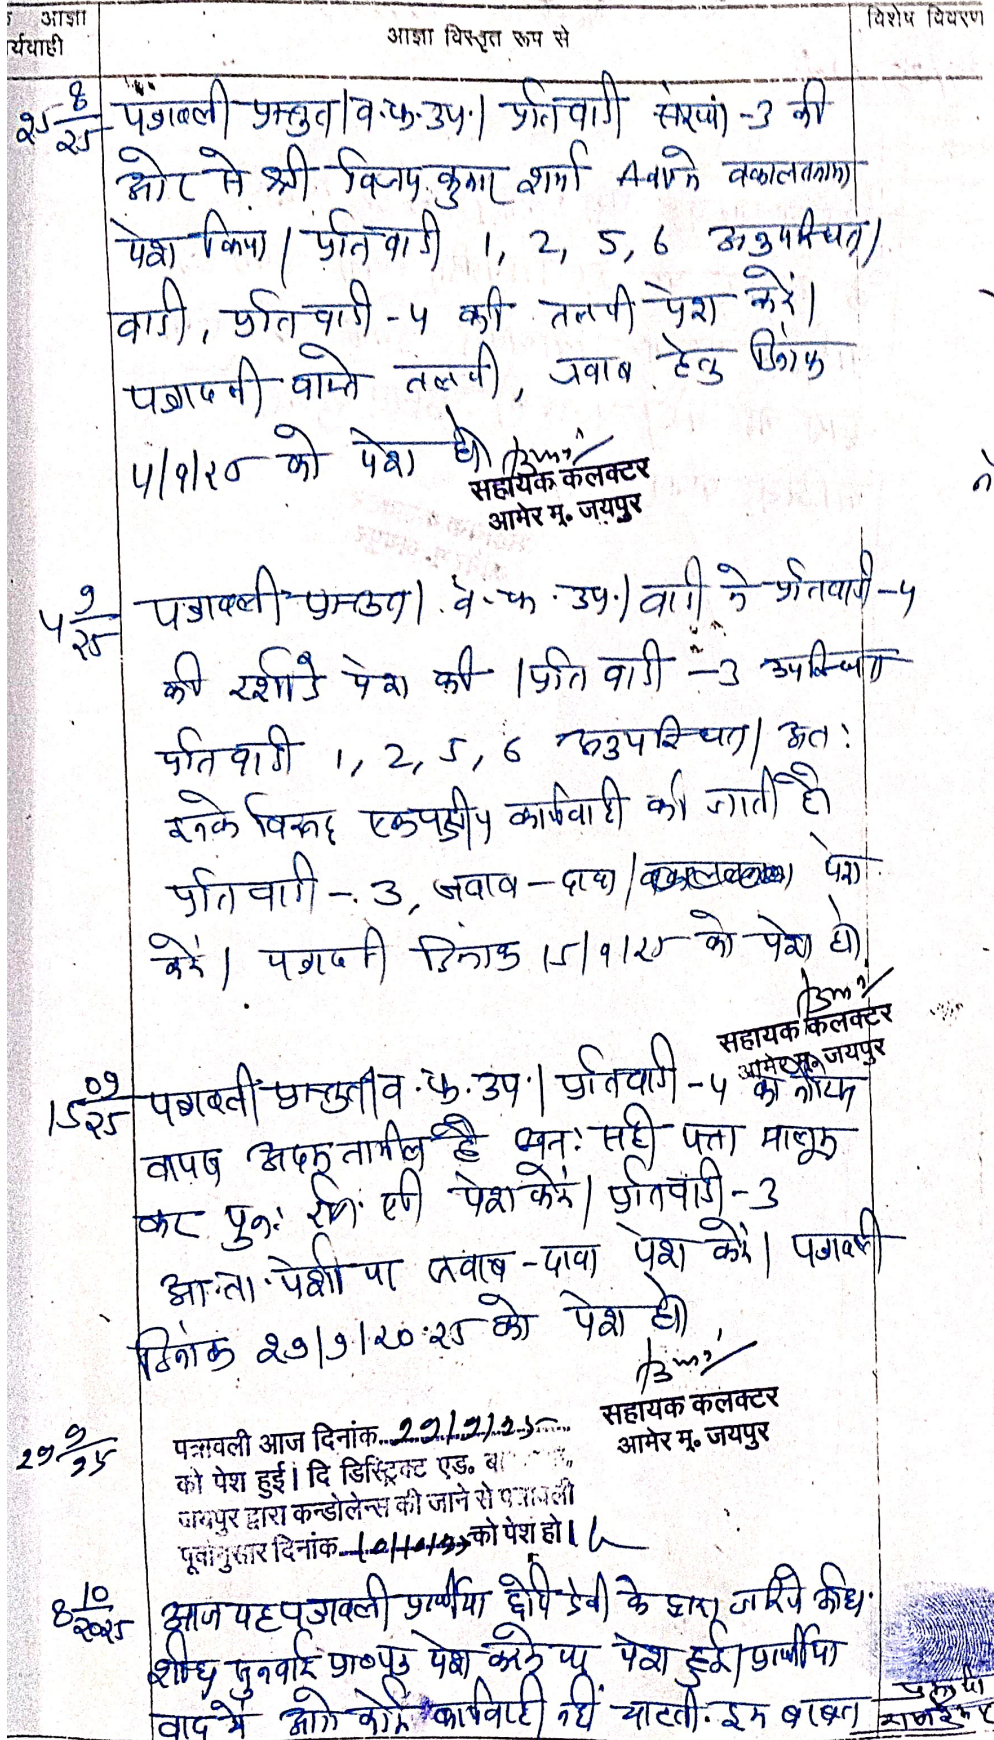 आज्ञा
र्यवाही
आज्ञा विस्तृत रूप से
विशेष विवरण
25 8/25 पत्रावली प्रस्तुत। व.फ.उप.। प्रतिवादी संख्या-3 की
ओर से श्री विजय कुमार शर्मा वकालतनामा
पेश किया। प्रतिवादी 1, 2, 5, 6 अनुपस्थित।
वादी, प्रतिवादी-4 की तलबी पेश करें।
पत्रावली वास्ते तलबी, जवाब हेतु दिनांक
4/9/25 को पेश हो।
सहायक कलक्टर
आमेर मु. जयपुर
4 9/25 पत्रावली प्रस्तुत। व.फ.उप.। वादी ने प्रतिवादी-4
की पेश की। प्रतिवादी-3 उपस्थित
प्रतिवादी 1, 2, 5, 6 अनुपस्थित। अतः
इनके विरूद्ध एकपक्षीय कार्यवाही की जाती है।
प्रतिवादी-3, जवाब-दावा पेश
करें। पत्रावली दिनांक 15/9/25 को पेश हो।
सहायक कलक्टर
आमेर मु. जयपुर
15 09/25 पत्रावली प्रस्तुत। व.फ.उप.। प्रतिवादी-4 का नोटिस
वापस अदम तामील है अतः सही पता मालूम
कर पुनः पेश करें। प्रतिवादी-3
आ.ता.पेशी पर जवाब-दावा पेश करें। पत्रावली
दिनांक 29/9/2025 को पेश हो।
सहायक कलक्टर
आमेर मु. जयपुर
29 9/25 पत्रावली आज दिनांक 29/9/25
को पेश हुई। दि डिस्ट्रिक्ट एड.
जयपुर द्वारा कन्डोलेन्स की जाने से पत्रावली
पूर्वानुसार दिनांक को पेश हो।
8 10/2025 आज यह पत्रावली प्रार्थीया देवी के द्वारा जरिये
शीघ्र सुनवाई प्रा०पत्र पेश करने पर पेश हुई। प्रार्थीया
वाद में आगे कोई कार्यवाही नहीं चाहती. इस बाबत